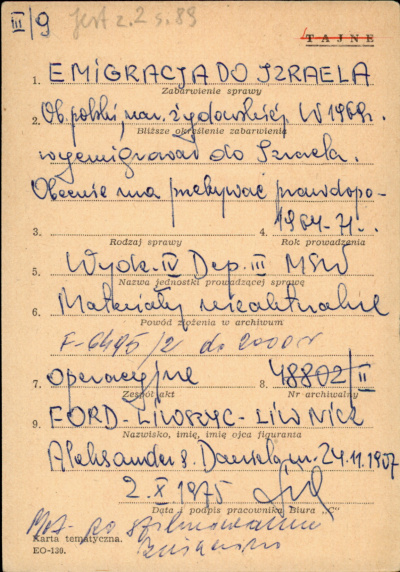 III/9 Jest z. 2 s. 89
TAJNE
1. EMIGRACJA DO IZRAELA
Zabarwienie sprawy
2. Ob. polski, nar. żydowskiej. W 1969 r.
Bliższe określenie zabarwienia
wyemigrował do Izraela.
Obecnie ma przebywać prawdopo-
3. 4. 1964-71..
Rodzaj sprawy Rok prowadzenia
5. Wydz. IV Dep. III MSW
Nazwa jednostki prowadzącej sprawę
6. Materiały nieaktualne
Powód złożenia w archiwum
F-6495/2 do 2000 r
7. operacyjne 8. 48802/II
Zespół akt Nr archiwalny
9. FORD-LIWSZYC-LIWNICZ
Nazwisko, imię, imię ojca figuranta
Aleksander s. Daniela ur. 24.11.1907
2.X.1975
Data i podpis pracownika Biura „C"
po szfilmowaniu
Karta tematyczna. zniszczono
EO-139.